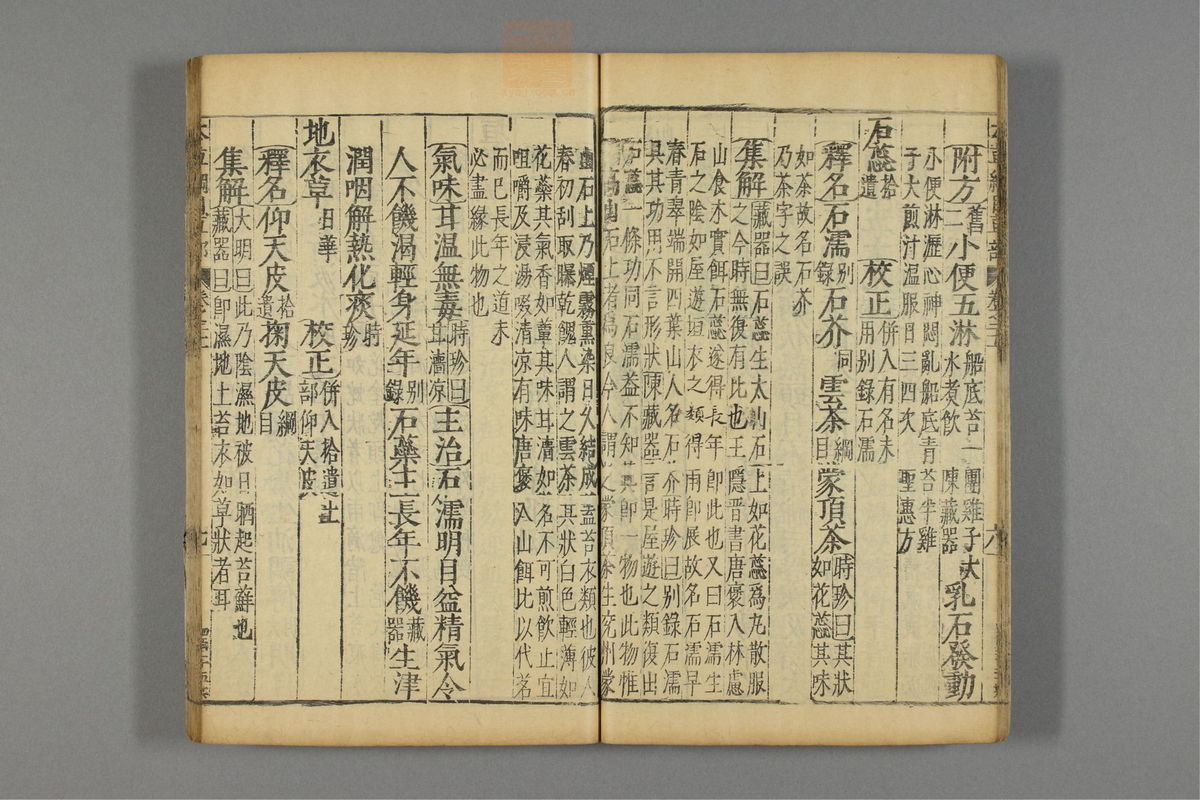 附方舊二小便五淋船底苔一團雞子大水煮飲陳藏器乳石發動
小便淋瀝心神悶亂船底青苔半雞
子大煎汁温服日三四次聖惠方
石蕊拾遺校正併入有名未用别錄石濡
釋名石濡别錄石芥同雲茶綱目蒙頂茶時珍曰其狀如花蕊其味
如茶故名石芥
乃茶字之誤
集解藏器曰石蕊生太山石上如花蕊為丸散服
之今時無復有此也王隱晉書庾褒入林慮
山食木實餌石蕊遂得長年即此也又曰石濡生
石之陰如屋遊垣衣之類得雨即展故名石濡早
春青翠端開四葉山人名石芥時珍曰别錄石濡
具其功用不言形狀陳藏器言是屋遊之類復出
石蕊一條功同石濡蓋不知其即一物也此物惟
高山石上者為良今人謂之蒙頂茶生兖州蒙
山石上乃煙霧薰染日久結成蓋苔衣類也彼人
春初刮取曝乾餽人謂之雲茶其狀白色輕薄如
花蕊其氣香如蕈其味甘濇如茗不可煎飲止宜
咀嚼及浸湯啜清凉有味庾褒入山餌比以代茗
而已長年之道未
必盡緣此物也
氣味甘温無毒時珍曰甘濇凉主治石濡明目益精氣令
人不饑渴輕身延年别錄石蕊主長年不饑藏器生津
潤咽解熱化痰時珍
地衣草日華校正併入拾遺土部仰天皮
釋名仰天皮拾遺掬天皮綱目
集解大明曰此乃陰濕地被日晒起苔蘚也
藏器曰即濕地上苔衣如草狀者耳